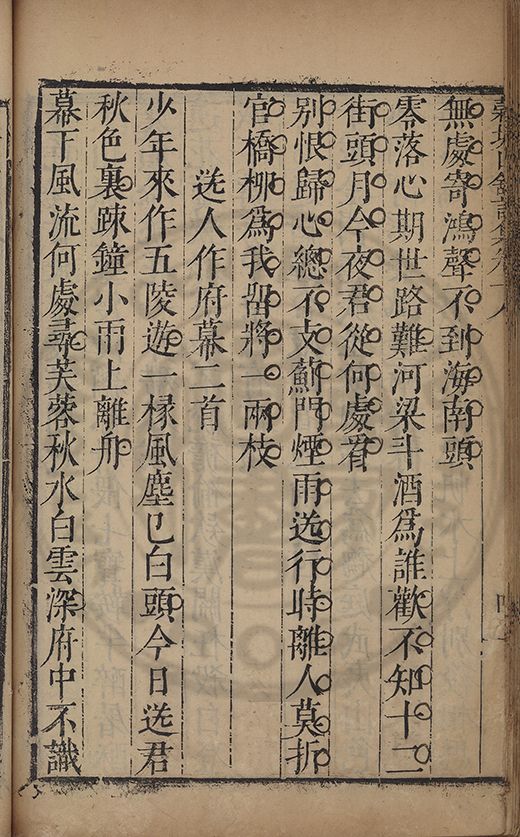 無處寄鴻聲不到海南頭
零落心期世路難河梁斗酒為誰歡不知十二
街頭月今夜君從何處看
別恨歸心總不支薊門煙雨送行時離人莫折
官橋栁為我留將一兩枝
送人作府幕二首
少年來作五陵遊一椽風塵已白頭今日送君
秋色裏踈鐘小雨上離舟
幕下風流何處尋芙蓉秋水白雲深府中不識